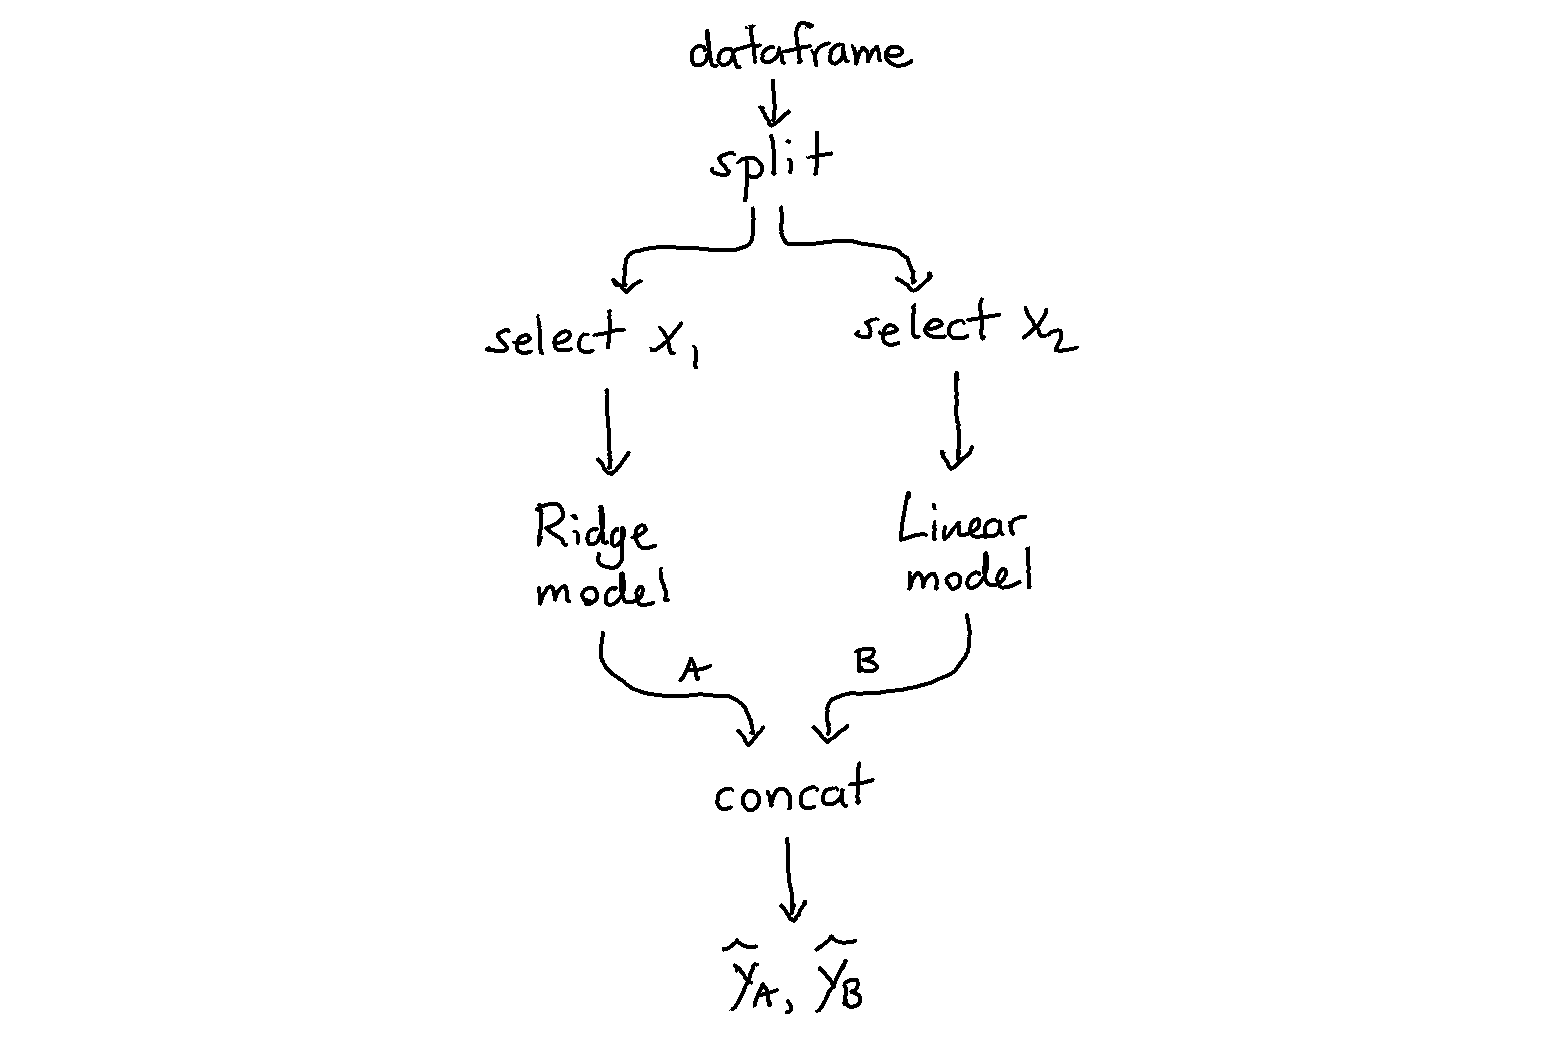 dataframe
split
select x₁
select x₂
Ridge
model
Linear
model
A
B
concat
ŷ_A, ŷ_B